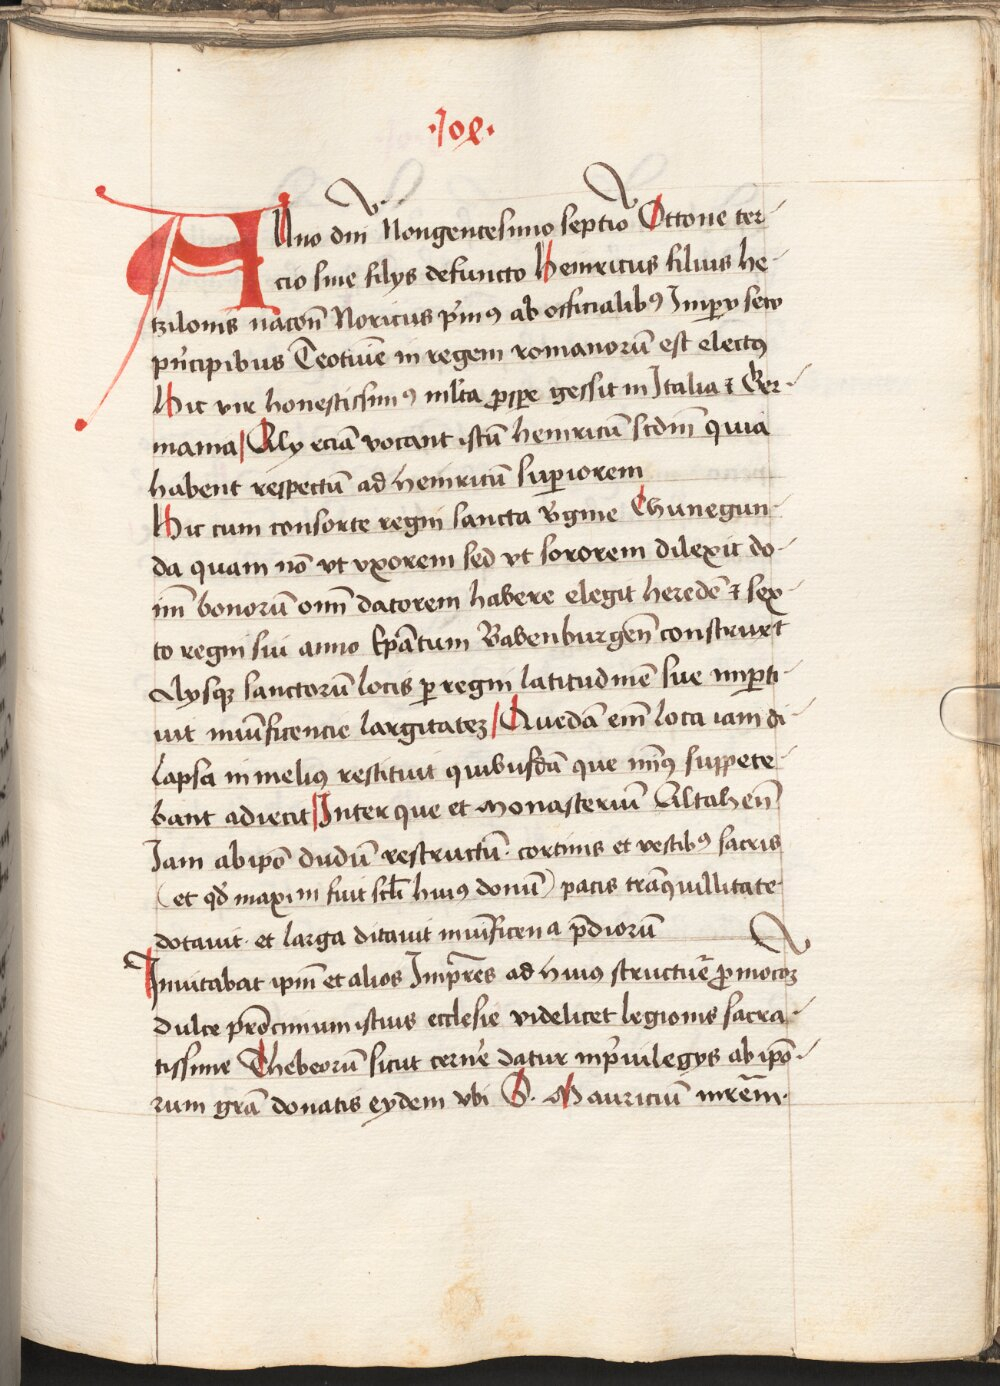 ·108·
Anno dm̄ Nongentesimo septīo Ottone ter-
cio sine filijs defuncto Heinricus filius he-
tzilonis nacōn Noricus p̄mꝰ ab officialibꝰ Imp̄ij seu
p̄ncipibus Teotōie in regem romanorū est electꝰ
Hic vir honestissimꝰ ml̄ta p̄spe gessit in Italia ⁊ Ger-
mania Alij eciā vocant istū heinricū scd̄m quia
habent respectū ad heinricū sup̄iorem
Hic cum consorte regni sancta v̄gine Chunegun-
da quam nō vt vxorem sed vt sororem dilexit do-
im̄ bonorū om̄ datorem habere elegit heredē ⁊ sex-
to regni sui anno Ep̄atum Babenburgen̄ construxt
Alijsqꝫ sanctorū locis p̄ regni latitudinē sue imp̄ti-
uit mūificencie largitateꝫ Quedā em̄ loca iam di-
lapsa in melius restituit quibusdā que minꝰ suppete-
bant adiecit Inter que et Monasteriū Altahen̄
Iam ab ip̄o dudū restructū· cortinis et vestibꝰ sacris
(et qd̄ maxim fuit scl̄i huius donū) pacis trāquillitate
dotauit· et larga ditauit mūificencia p̄diorū
Inuitabat ip̄m et alios Imp̄res ad huius structūe p̄mocoꝫ
dulce p̄rocinium istius ecclesie videlicet legionis sacra-
tissime Thebeorū sicut cern̄e datur in p̄uilegijs ab ip̄o-
rum grā donatis eydem vbi S. Mauriciū in rēm·